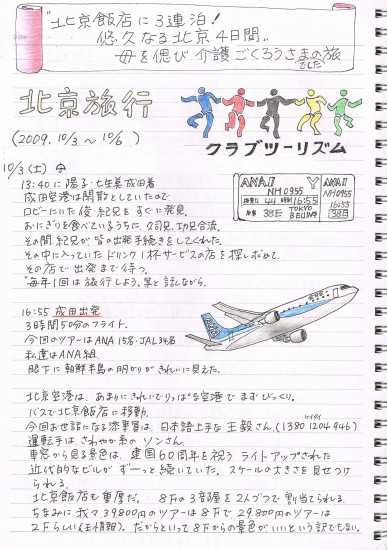 "北京飯店に3連泊!
悠久なる北京4日間"
母を偲び 介護ごくろうさまの旅
でした
北京旅行
(2009. 10/3 ~ 10/6 )
クラブツーリズム
10/3(土)
13:40 に 陽子・七生美 成田着
成田空港は閑散としていたので
ロビーにいた俊・紀兄をすぐに発見。
おにぎりを食べているうちに久司兄、功兄合流。
その間、紀兄が皆の出発手続きをしてくれた。
その中に入っていたドリンク1杯サービスの店を探し求めて
その店で出発まで待つ。
"毎年1回は旅行しよう。"等と話しながら。
ANA
NH0955
搭乗口 44 時刻 16:55
座席 38E TOKYO
BEIJING
Y
ANA
NH0955
16:55
38E
16:55 成田出発
3時間50分のフライト。
今回のツアーはANA 15名・JAL 34名
私達はANA組
眼下に朝鮮半島の明かりがきれいに見えた。
ANA
北京空港は、あまりにきれいでりっぱな空港でまずびっくり。
バスで北京飯店に移動。
今回お世話になる添乗員は、日本語上手な王毅さん。(1380 1204 946)
ケイタイ
運転手は、さわやか系のソンさん。
車窓から見る景色は、建国60周年を祝うライトアップされた
近代的なビルがずーっと続いていた。スケールの大きさを見せつけ
られる。
北京飯店も重厚だ。8Fの3部屋を2人づつで割当てられる。
ちなみに我々39,800円のツアーは8Fで29,800円のツアーは
2Fらしい(王情報)。だからといって8Fからの景色がいいという訳でもない。